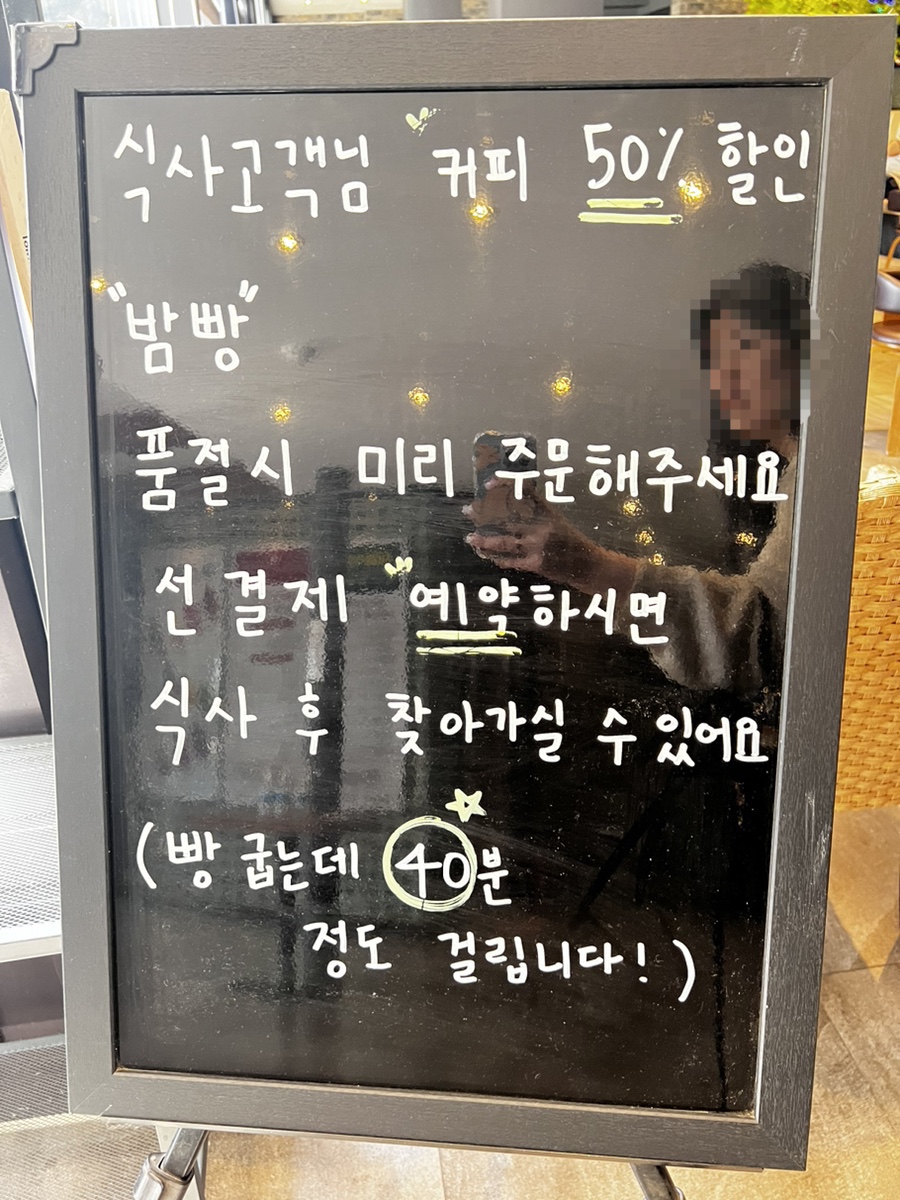 식사고객님 커피 50% 할인
"밤빵"
품절시 미리 주문해주세요
선결제 예약하시면
식사 후 찾아가실 수 있어요
(빵 굽는데 40분
정도 걸립니다!)